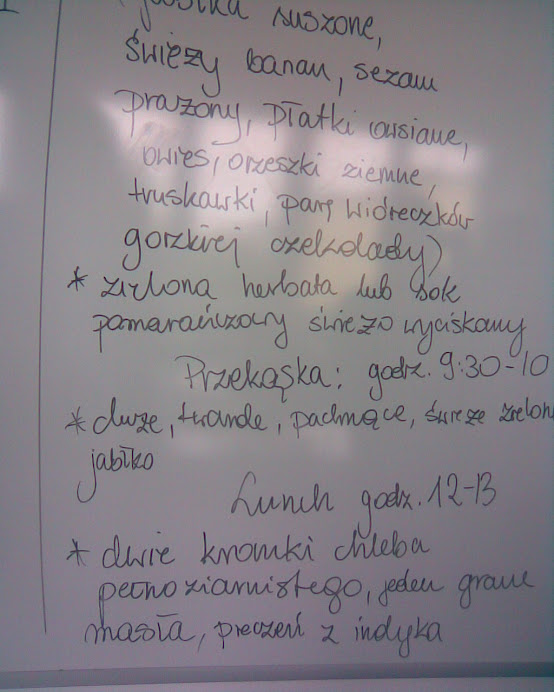 jabłka suszone,
świeży banan, sezam
prażony, płatki owsiane,
owies, orzeszki ziemne,
truskawki, parę wióreczków
gorzkiej czekolady)
* zielona herbata lub sok
pomarańczowy świeżo wyciskany
Przekąska: godz. 9:30-10
* duże, twarde, pachnące, świeże zielone
jabłko
Lunch godz. 12-13
* dwie kromki chleba
pełnoziarnistego, jeden gram
masła, pieczeń z indyka